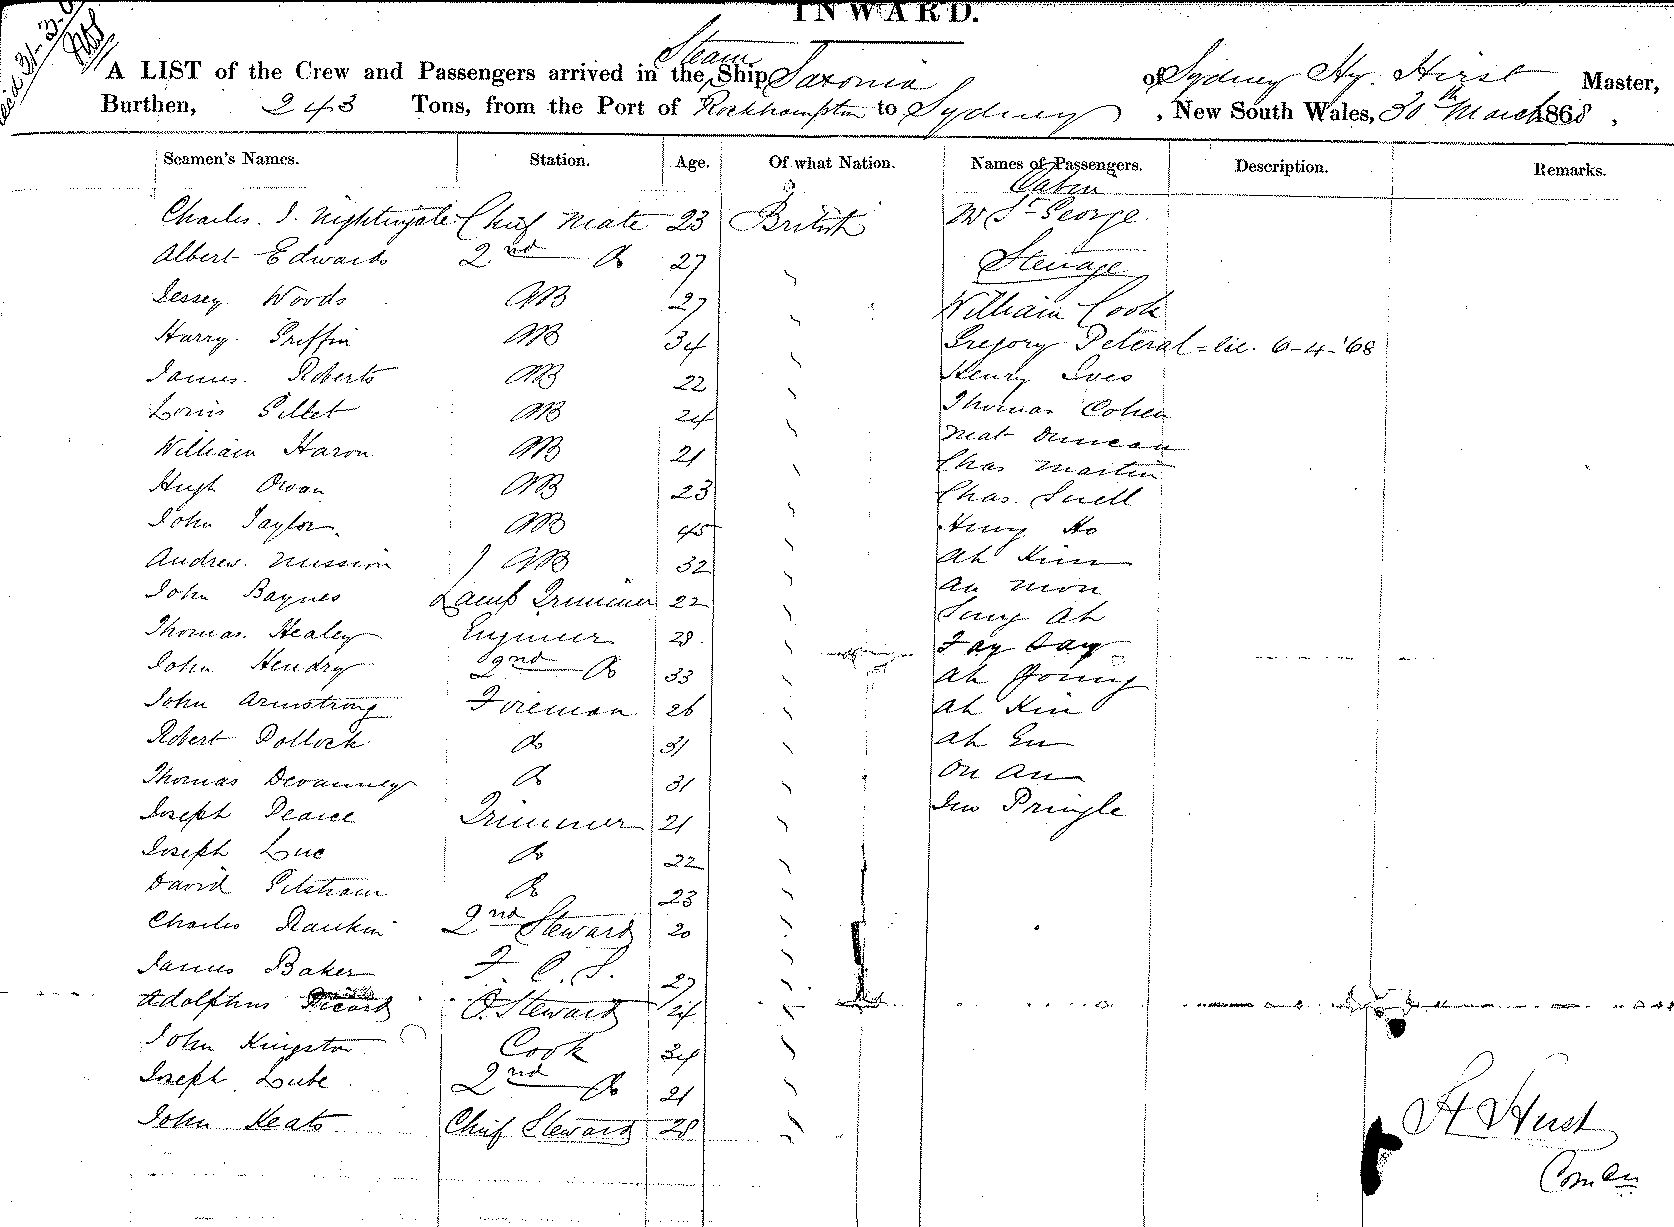 INWARD.
A LIST of the Crew and Passengers arrived in the Steam Ship Saxonia of Sydney Hy. Hirst Master,
Burthen, 243 Tons, from the Port of Rockhampton to Sydney, New South Wales, 30th March 1868,
Seamen's Names. Station. Age. Of what Nation. Names of Passengers. Description. Remarks.
Cabin
Charles. J. Nightingale Chief Mate 23 British Mr St George
Albert Edwards 2nd Do 27 Steerage
Jessey Woods AB 27 William Cook
Harry Griffin AB 34 Gregory Peteral = lic. 6-4-'68
James. Roberts AB 22 Henry Ives
Louis Gillet AB 24 Thomas Cohen
William Haron AB 21 Mat Duncan
Chas Martin
Hugh Owan AB 23 Chas. Snell
John Taylor AB 45 Hung Ho
Andrew. Mission AB 32 Ah Kim
John Baynes Lamp Trimmer 22 Au Mon
Sung Ah
Thomas. Healey Engineer 28 Fay Say
John Hendry 2nd Do 33 Ah Young
John Armstrong Fireman 26 Ah Kin
Robert Pollock Do 31 Ah En
Thomas Devanney Do 31 On An
Joseph Pearce Trimmer 21 Jno Pringle
Joseph Luc Do 22
David Do 23
Charles Rankin 2nd Steward 20
James Baker F. C. S. 27
Adolphus Picard O. Steward 24
John Kingston Cook 34
Joseph Lube 2nd Do 21
John Keats Chief Steward 28
H Hirst